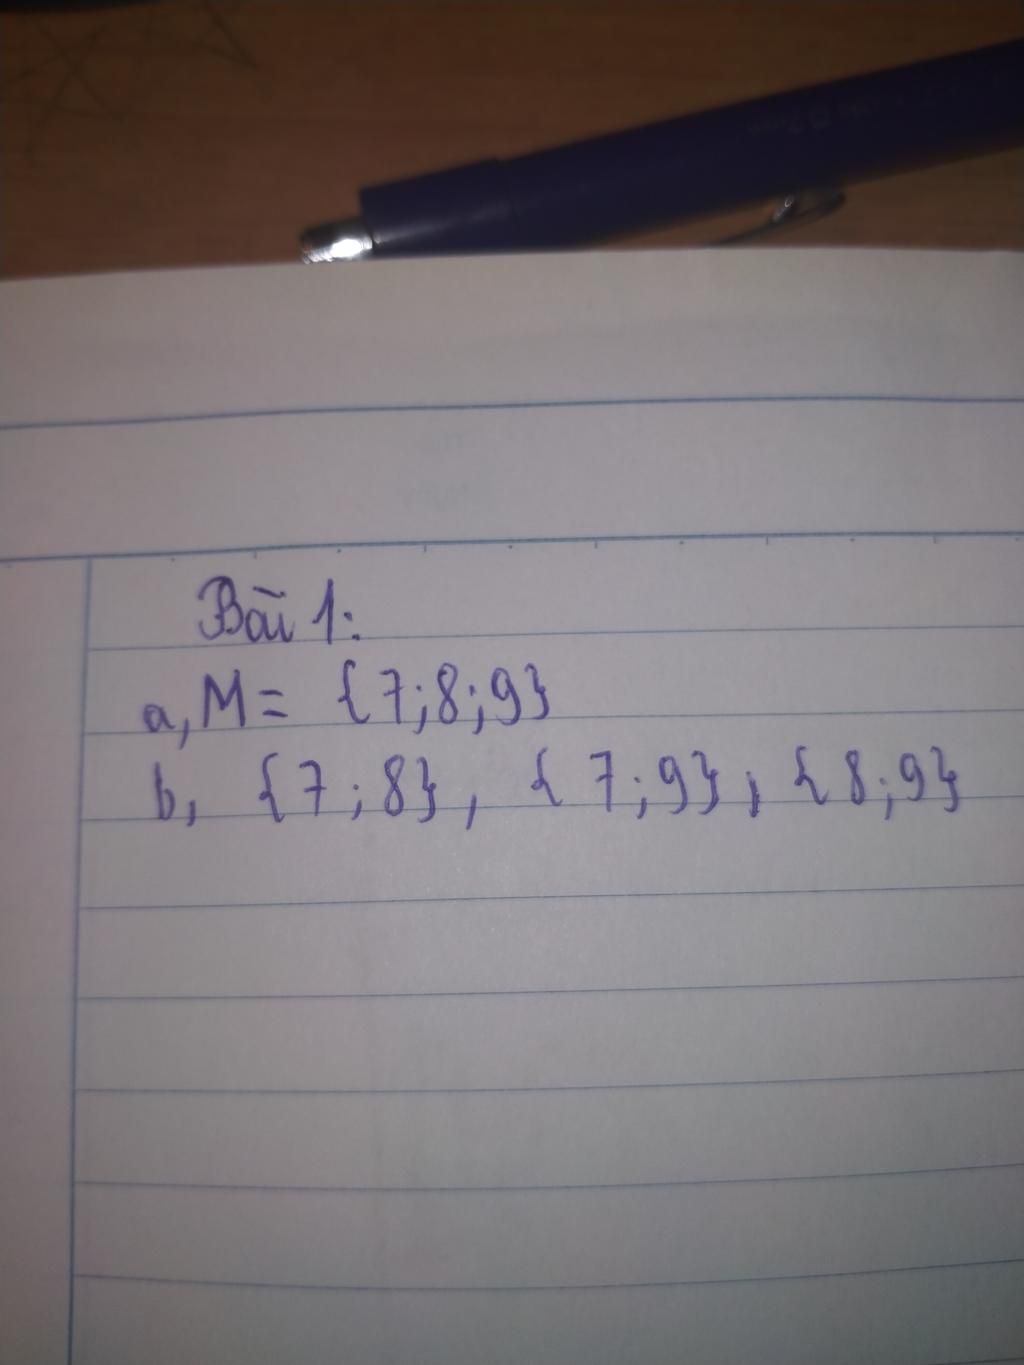 Bài 1:
a, M = {7;8;9}
b, {7;8}, {7;9}, {8;9}